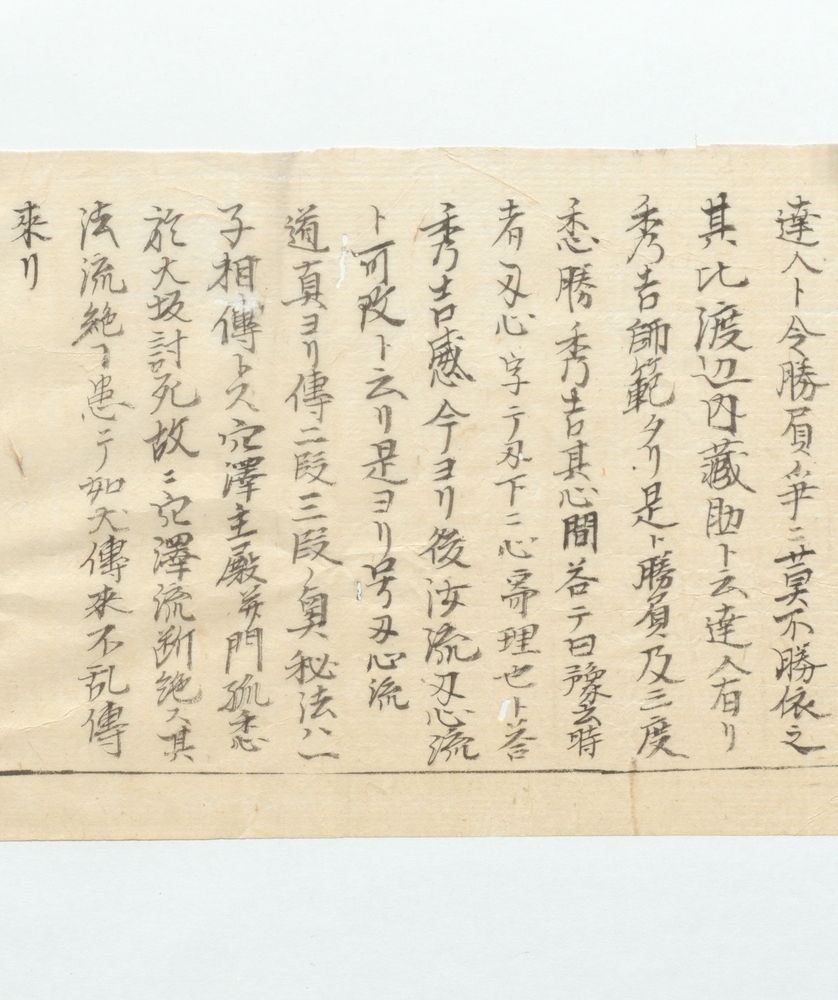 達人ト令勝屓爭ニ莫不勝依之
其比渡辺内藏助ト云達人有リ
秀吉師範タリ是ト勝負及三度
悉勝秀吉其心間答テ曰豫云時
者刃心字テ刃下ニ心需理也ト答
秀吉感今ヨリ後汝流刃心流
ト可改ト云リ是ヨリ号刃心流
道真ヨリ傳二段三段ノ奧秘法ハ一
子相傳トス穴澤主殿并門弧悉
於大坂討死故ニ穴澤流断絶ス其
法流絶ヿ患テ如犬傳來不乱傳
來リ